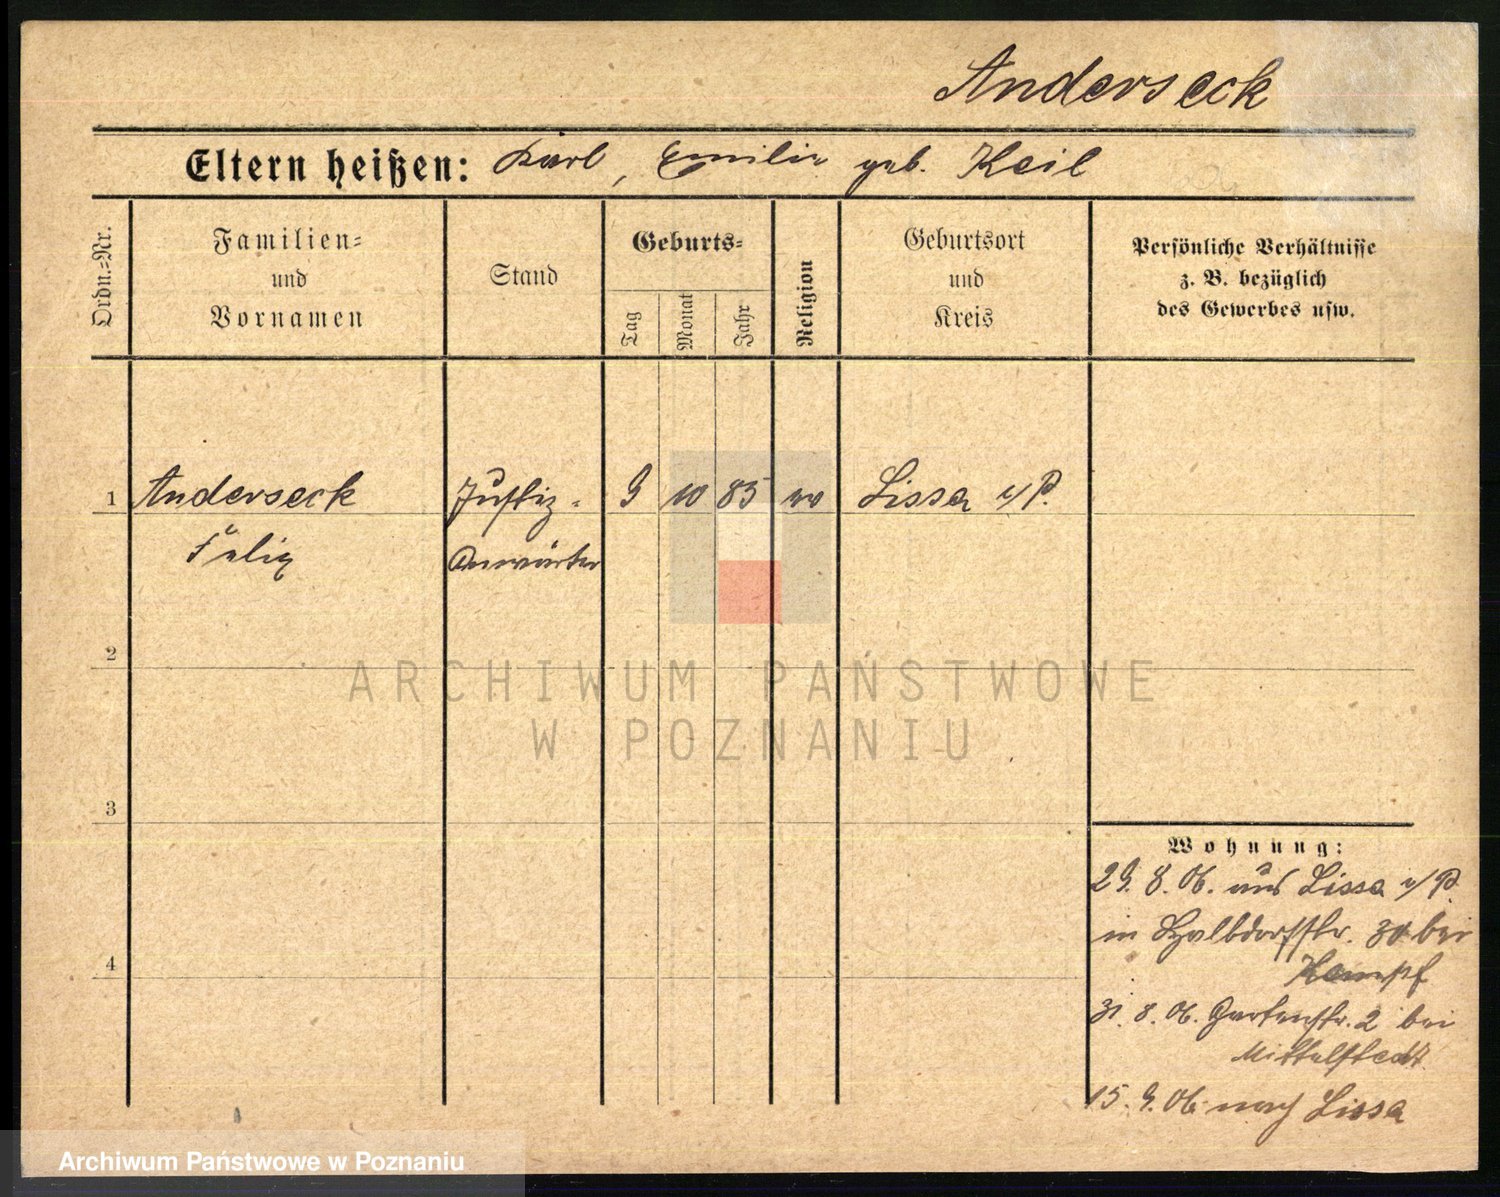 Anderseck
Eltern heißen: Karl, Emilie geb. Keil
Ordn.=Nr.
Familien=
und
Vornamen
Stand
Geburts=
Tag
Monat
Jahr
Religion
Geburtsort
und
Kreis
Persönliche Verhältnisse
z. B. bezüglich
des Gewerbes usw.
1 Anderseck Justiz- 9 10 85 ev Lissa i/P.
Felix Anwärter
2
ARCHIWUM PAŃSTWOWE
W POZNANIU
3
Wohnung:
29. 8. 06. aus Lissa i/P.
in Halbdorfstr. 30 bei
4
Kempf
31. 8. 06. Gartenstr. 2 bei
Mittelstedt
15. 9. 06. nach Lissa
Archiwum Państwowe w Poznaniu